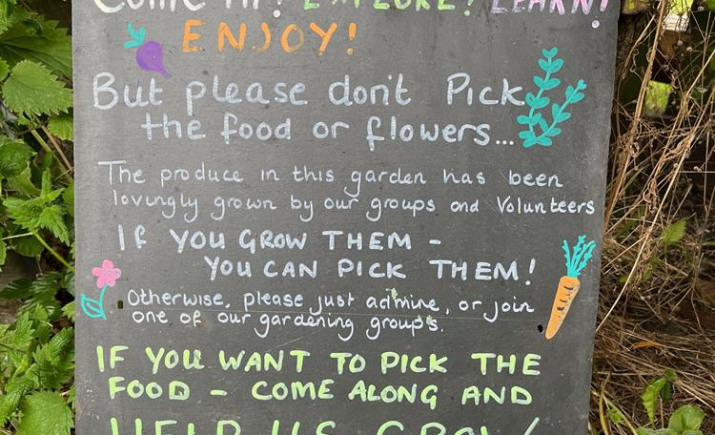 COME IN! EXPLORE! LEARN!
ENJOY!
But please don't Pick
the food or flowers...
The produce in this garden has been
lovingly grown by our groups and Volunteers
IF YOU GROW THEM -
YOU CAN PICK THEM!
Otherwise, please just admire, or join
one of our gardening groups.
IF YOU WANT TO PICK THE
FOOD - COME ALONG AND
HELP US GROW!